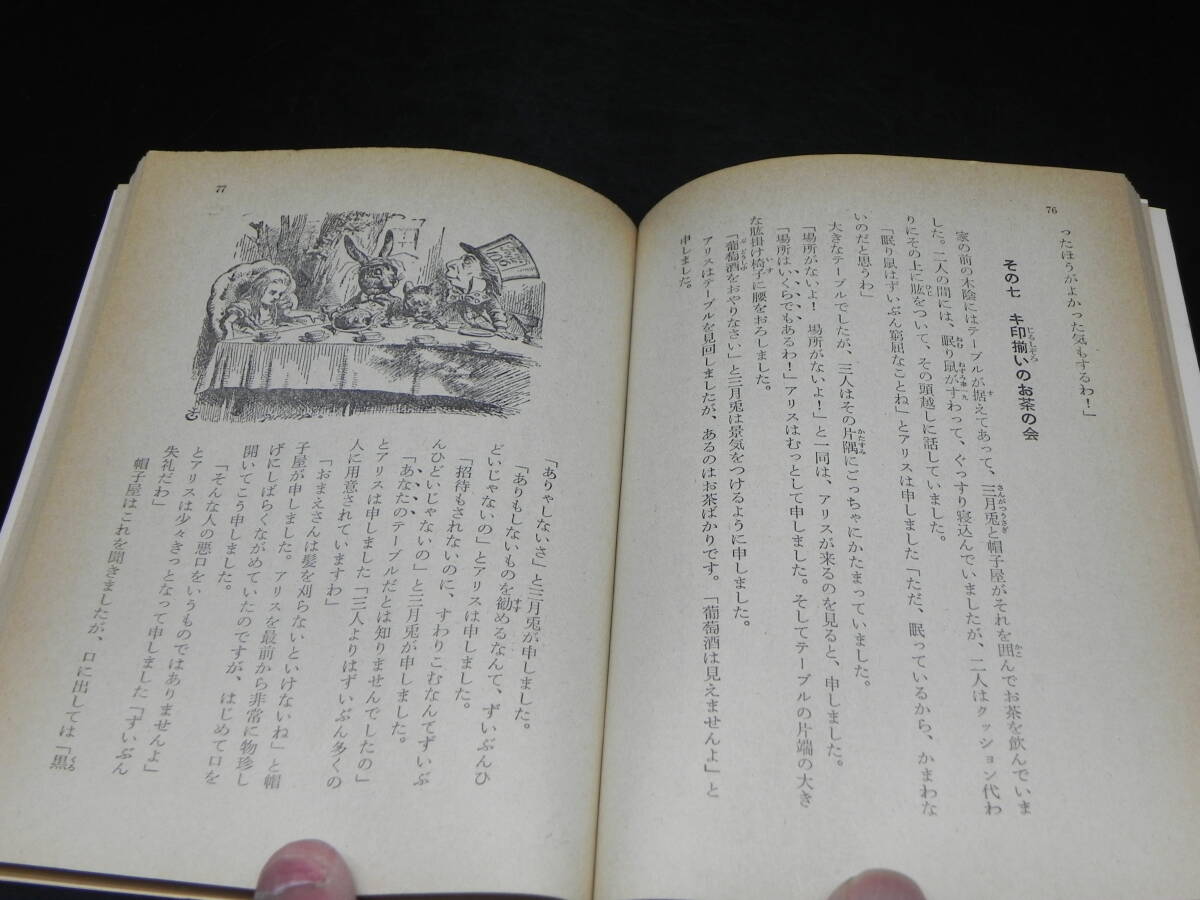 76
ったほうがよかった気もするわ！」
その七　キ印揃いのお茶の会
家の前の木陰にはテーブルが据えてあって、三月兎と帽子屋がそれを囲んでお茶を飲んでいま
した。二人の間には、眠り鼠がすわって、ぐっすり寝込んでいましたが、二人はクッション代わ
りにその上に肱をついて、その頭越しに話していました。
「眠り鼠はずいぶん窮屈なことね」とアリスは申しました「ただ、眠っているから、かまわな
いのだと思うわ」
大きなテーブルでしたが、三人はその片隅にごっちゃにかたまっていました。
「場所がないよ！　場所がないよ！」と一同は、アリスが来るのを見ると、申しました。
「場所はいくらでもあるわ！」アリスはむっとして申しました。そしてテーブルの片端の大き
な肱掛け椅子に腰をおろしました。
「葡萄酒をおやりなさい」と三月兎は景気をつけるように申しました。
アリスはテーブルを見回しましたが、あるのはお茶ばかりです。「葡萄酒は見えませんよ」と
申しました。
77
「ありゃしないさ」と三月兎が申しました。
「ありもしないものを勧めるなんて、ずいぶんひ
どいじゃないの」とアリスは申しました。
「招待もされないのに、すわりこむなんてずいぶ
んひどいじゃないの」と三月兎が申しました。
「あなたのテーブルだとは知りませんでしたの」
とアリスは申しました「三人よりはずいぶん多くの
人に用意されていますわ」
「おまえさんは髪を刈らないといけないね」と帽
子屋が申しました。アリスを最前から非常に物珍し
げにしばらくながめていたのですが、はじめて口を
開いてこう申しました。
「そんな人の悪口をいうものではありませんよ」
とアリスは少々きっとなって申しました「ずいぶん
失礼だわ」
帽子屋はこれを聞きましたが、口に出しては「黒